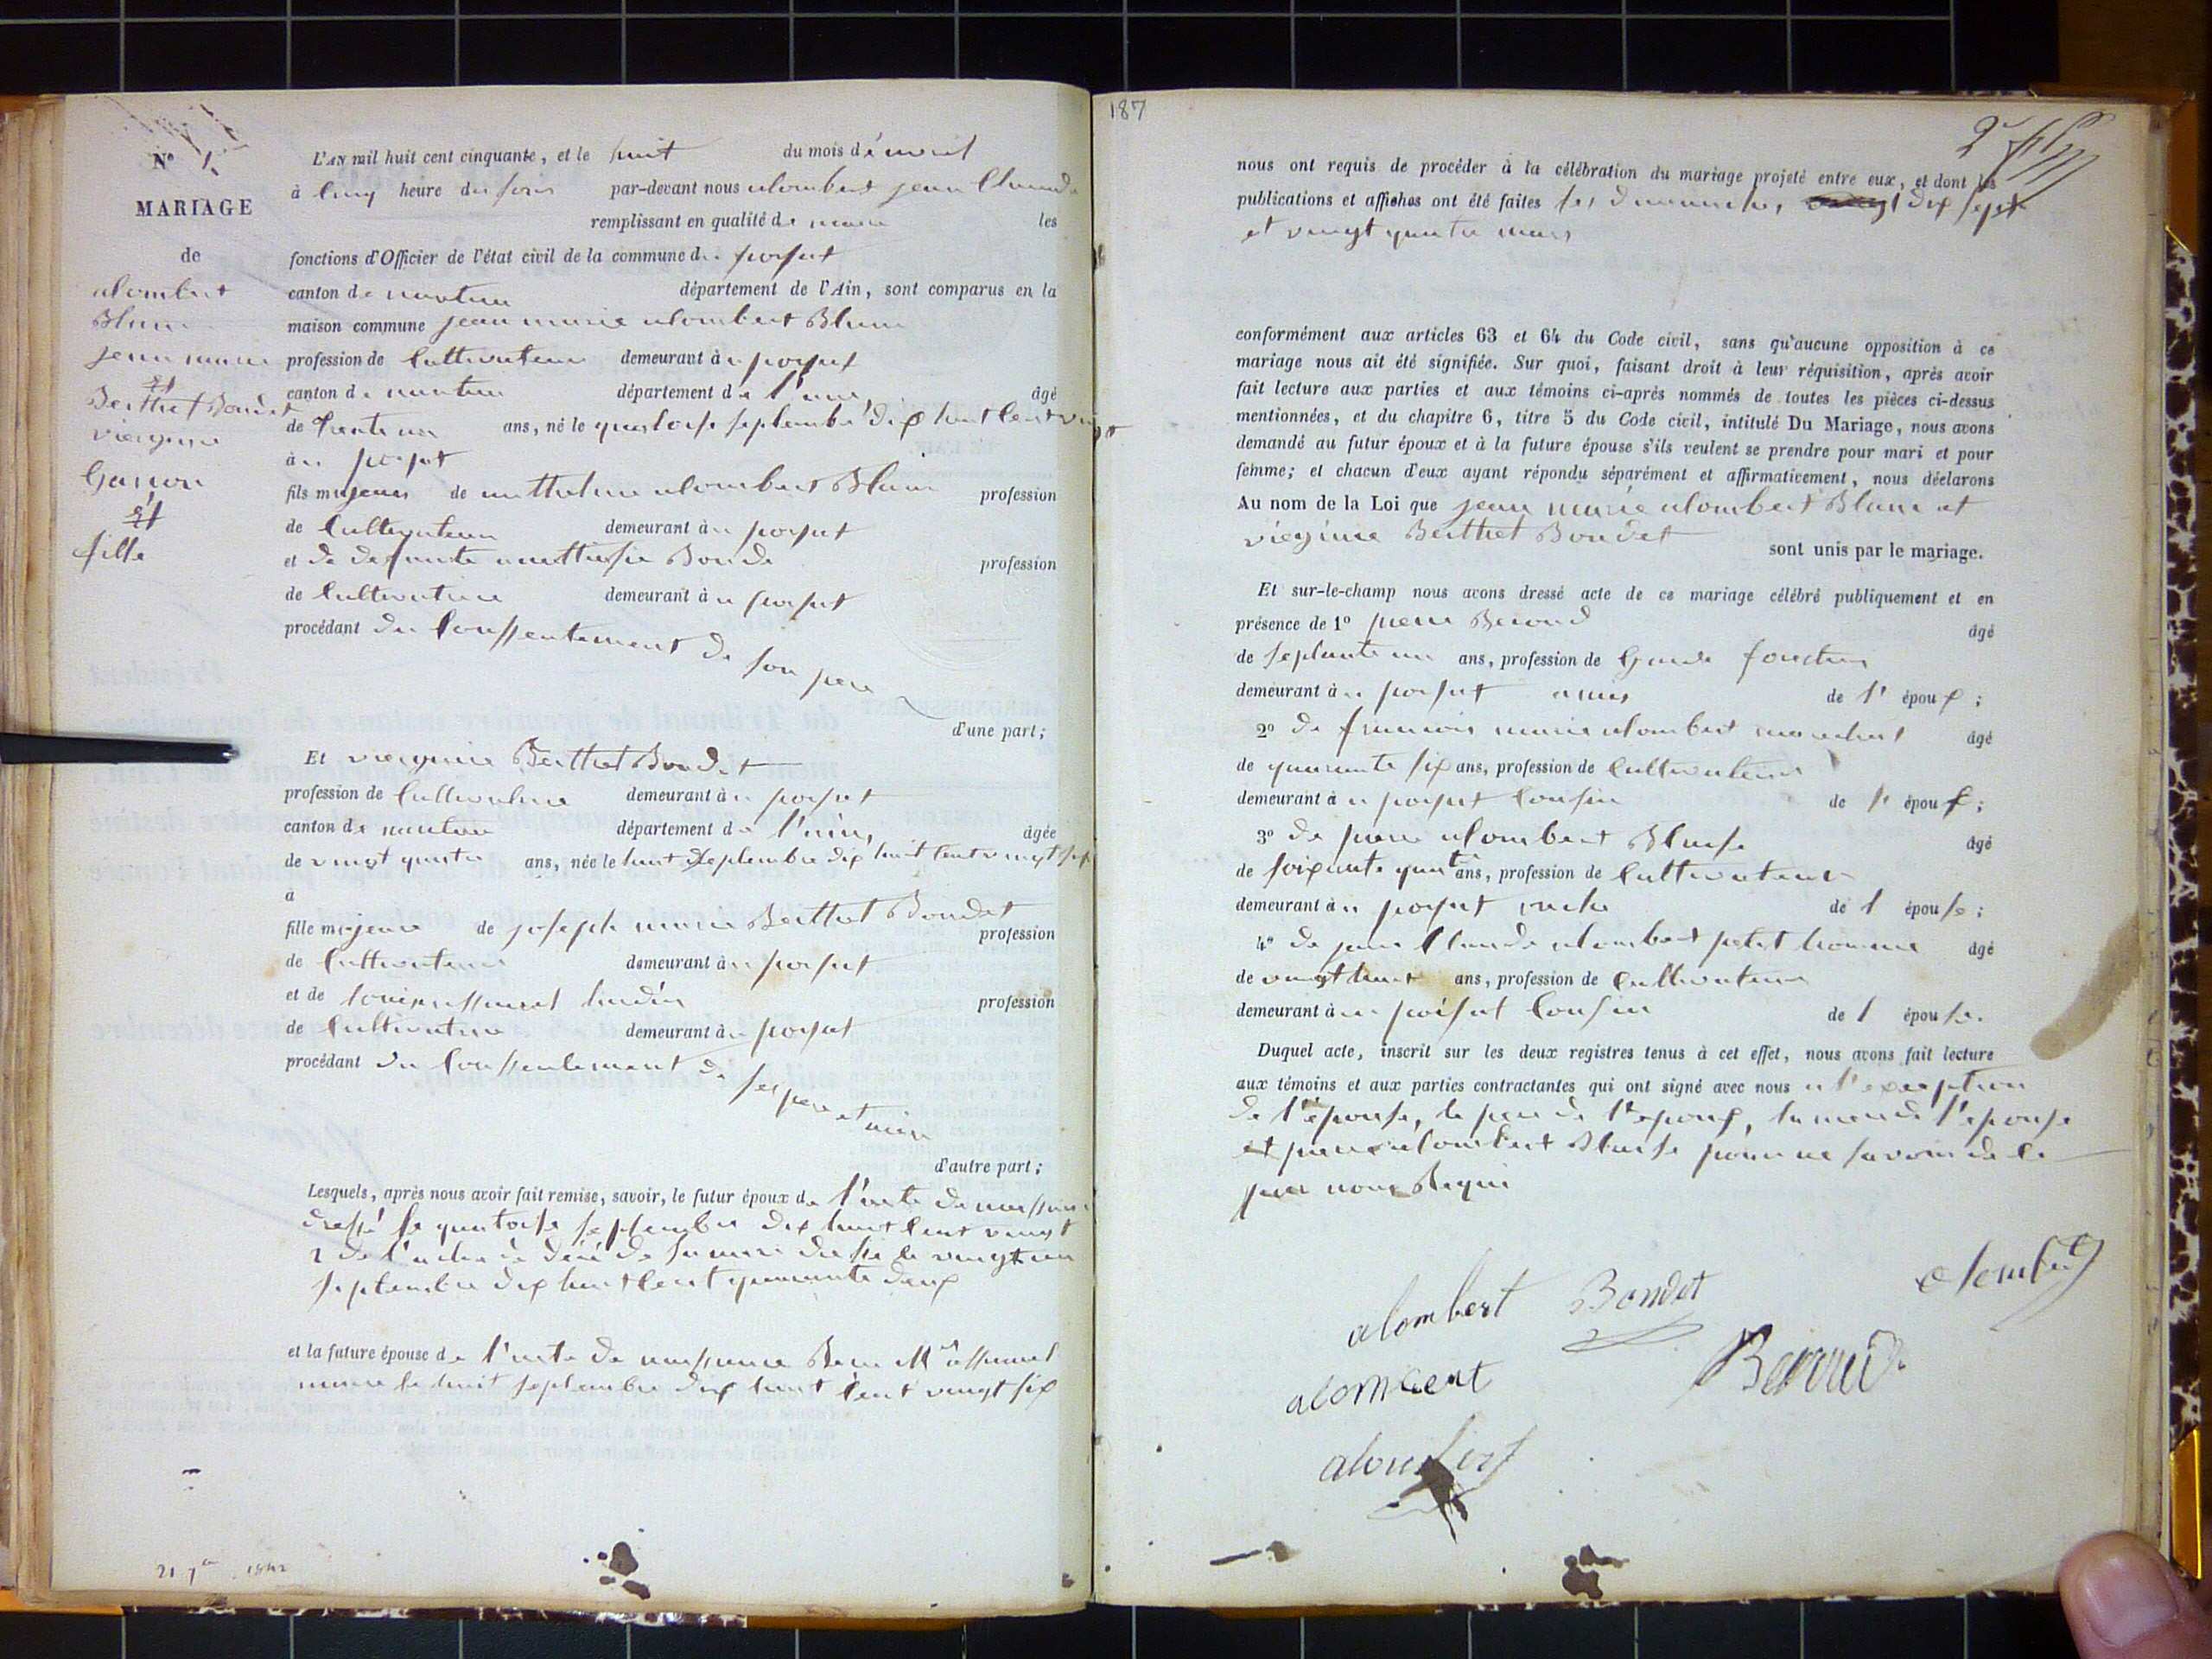 N° 1.
MARIAGE
de
alombert
Blanc
jean marie
et
Berthet Bondet
viergenie
Garson
et
fille
L'AN mil huit cent cinquante, et le huit du mois d'avril
à cinq heure du soir par-devant nous alombert jean Claude
remplissant en qualité de maire les
fonctions d'Officier de l'état civil de la commune de
canton de nantua département de l'Ain, sont comparus en la
maison commune jean marie alombert Blanc
profession de Cultivateur demeurant à
canton de nantua département de l'ain, âgé
de trente un ans, né le quatorse septembre dix huit Cent vingt
à
fils majeur de alombert Blanc profession
de Cultivateur demeurant à
et de defunte Bonde profession
de Cultivatrice demeurant à
procédant du Conssentement de son pere
d'une part;
Et viergenie Berthet Bondet
profession de Cultivatrice demeurant à
canton de nantua département de l'ain, âgée
de vingt quatre ans, née le huit septembre dix huit Cent vingt six
à
fille majeure de joseph marie Berthet Bondet profession
de Cultivateur demeurant à
et de profession
de Cultivatrice demeurant à
procédant du Conssentement de ses pere et mere
d'autre part;
Lesquels, après nous avoir fait remise, savoir, le futur époux de l'acte de naissance
dressé le quatorse septembre dix huit Cent vingt
2 de l'acte de décé de sa mere le vingt un
septembre dix huit Cent quarante deux
et la future épouse de l'acte de naissance
maire le huit septembre dix huit Cent vingt six
21 7bre 1842
187
2e
nous ont requis de procéder à la célébration du mariage projeté entre eux, et dont les
publications et affiches ont été faites les dimanches, dix sept
et vingt quatre mars
conformément aux articles 63 et 64 du Code civil, sans qu'aucune opposition à ce
mariage nous ait été signifiée. Sur quoi, faisant droit à leur réquisition, après avoir
fait lecture aux parties et aux témoins ci-après nommés de toutes les pièces ci-dessus
mentionnées, et du chapitre 6, titre 5 du Code civil, intitulé Du Mariage, nous avons
demandé au futur époux et à la future épouse s'ils veulent se prendre pour mari et pour
femme; et chacun d'eux ayant répondu séparément et affirmativement, nous déclarons
Au nom de la Loi que jean marie alombert Blanc et
viergenie Berthet Bondet
sont unis par le mariage.
Et sur-le-champ nous avons dressé acte de ce mariage célébré publiquement et en
présence de 1° pierre Beroud âgé
de septante un ans, profession de Garde
demeurant à amis de l' époux;
2° de francois marie alombert âgé
de quarante six ans, profession de Cultivateur
demeurant à Cousin de l' époux;
3° de pierre alombert Blaise âgé
de soixante quatre ans, profession de Cultivateur
demeurant à oncle de l épouse;
4° de jean Claude alombert petit homme âgé
de vingt huit ans, profession de Cultivateur
demeurant à Cousin de l épouse.
Duquel acte, inscrit sur les deux registres tenus à cet effet, nous avons fait lecture
aux témoins et aux parties contractantes qui ont signé avec nous a l'exeption
de l'épouse, le pere de l'epoux, la mere de l'epouse
et pierre alombert Blaise pour ne savoir de ce
par nous Requi
alombert Bondet alombert
alombert Beroud
alombert